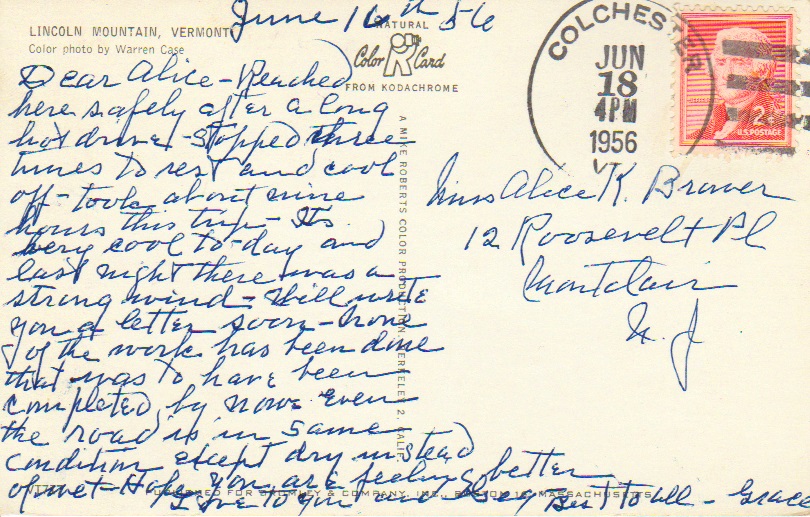 June 16th 56
LINCOLN MOUNTAIN, VERMONT
Color photo by Warren Case
NATURAL
Color Card
FROM KODACHROME
COLCHESTER
JUN
18
4 PM
1956
VT.
2¢
U.S. POSTAGE
Dear Alice - Reached
here safely after a long
hot drive - stopped three
times to rest and cool
off - took about nine
hours this trip - Its
very cool to-day and
last night there was a
strong wind - Will write
you a letter soon - None
of the work has been done
that was to have been
completed by now. Even
the road is in same
condition except dry instead
of wet - Hope you are feeling better
Love to you and Best to all - Grace
Miss Alice K. Brower
12 Roosevelt Pl
Montclair
N. J
A MIKE ROBERTS COLOR PRODUCTION, BERKELEY 2, CALIF.
PUBLISHED FOR BROMLEY & COMPANY, INC., BOSTON 10, MASSACHUSETTS